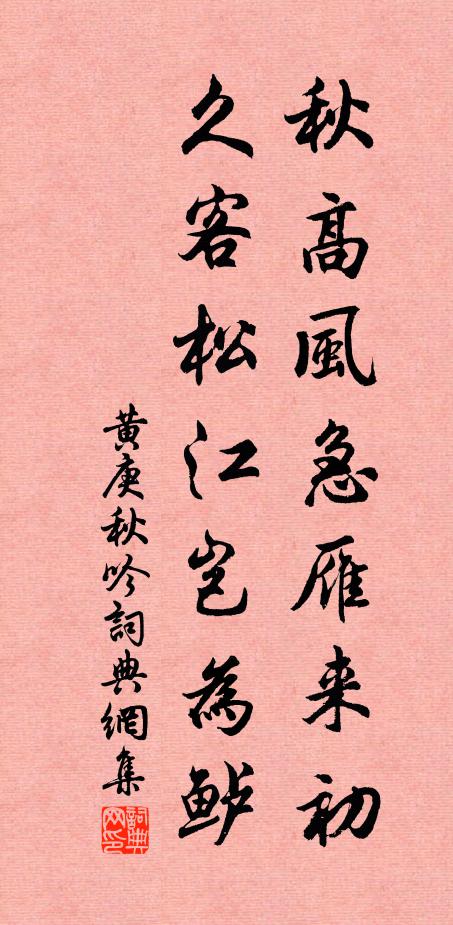 秋高風急雁来初
久客松江岂為鲈
黄庚秋吟詞典網集
詞典
网印